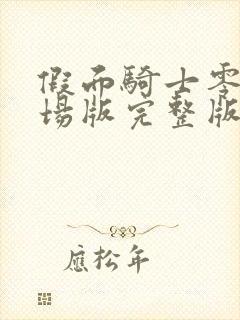 假面騎士零
場版完整版
應松年